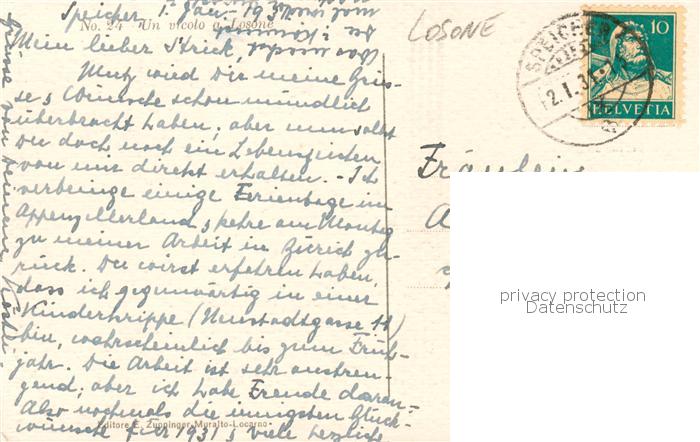 Speicher, 1. Jan. 1931.
No. 24 Un vicolo a Losone
LOSONE
Mein lieber Strick,
Mutz wird Dir meine Grüs-
se & Wünsche schon mündlich
überbracht haben; aber nun sollst
Du doch noch ein Lebenszeichen
von mir direkt erhalten. - Ich
verbringe einige Ferientage im
Appenzellerland & kehre am Montag
zu meiner Arbeit in Zürich zu-
rück. Du wirst erfahren haben,
dass ich gegenwärtig in einer
Kinderkrippe (Neustadtgasse 11)
bin, wahrscheinlich bis zum Früh-
jahr. Die Arbeit ist sehr anstren-
gend; aber ich habe Freude daran.
Also nochmals die innigsten Glück-
wünsche für 1931 & viele herzliche
Grüsse von
Editore E. Zuppinger-Muralto-Locarno
SPEICHER
2.I.31
10
HELVETIA
Fräulein
privacy protection
Datenschutz